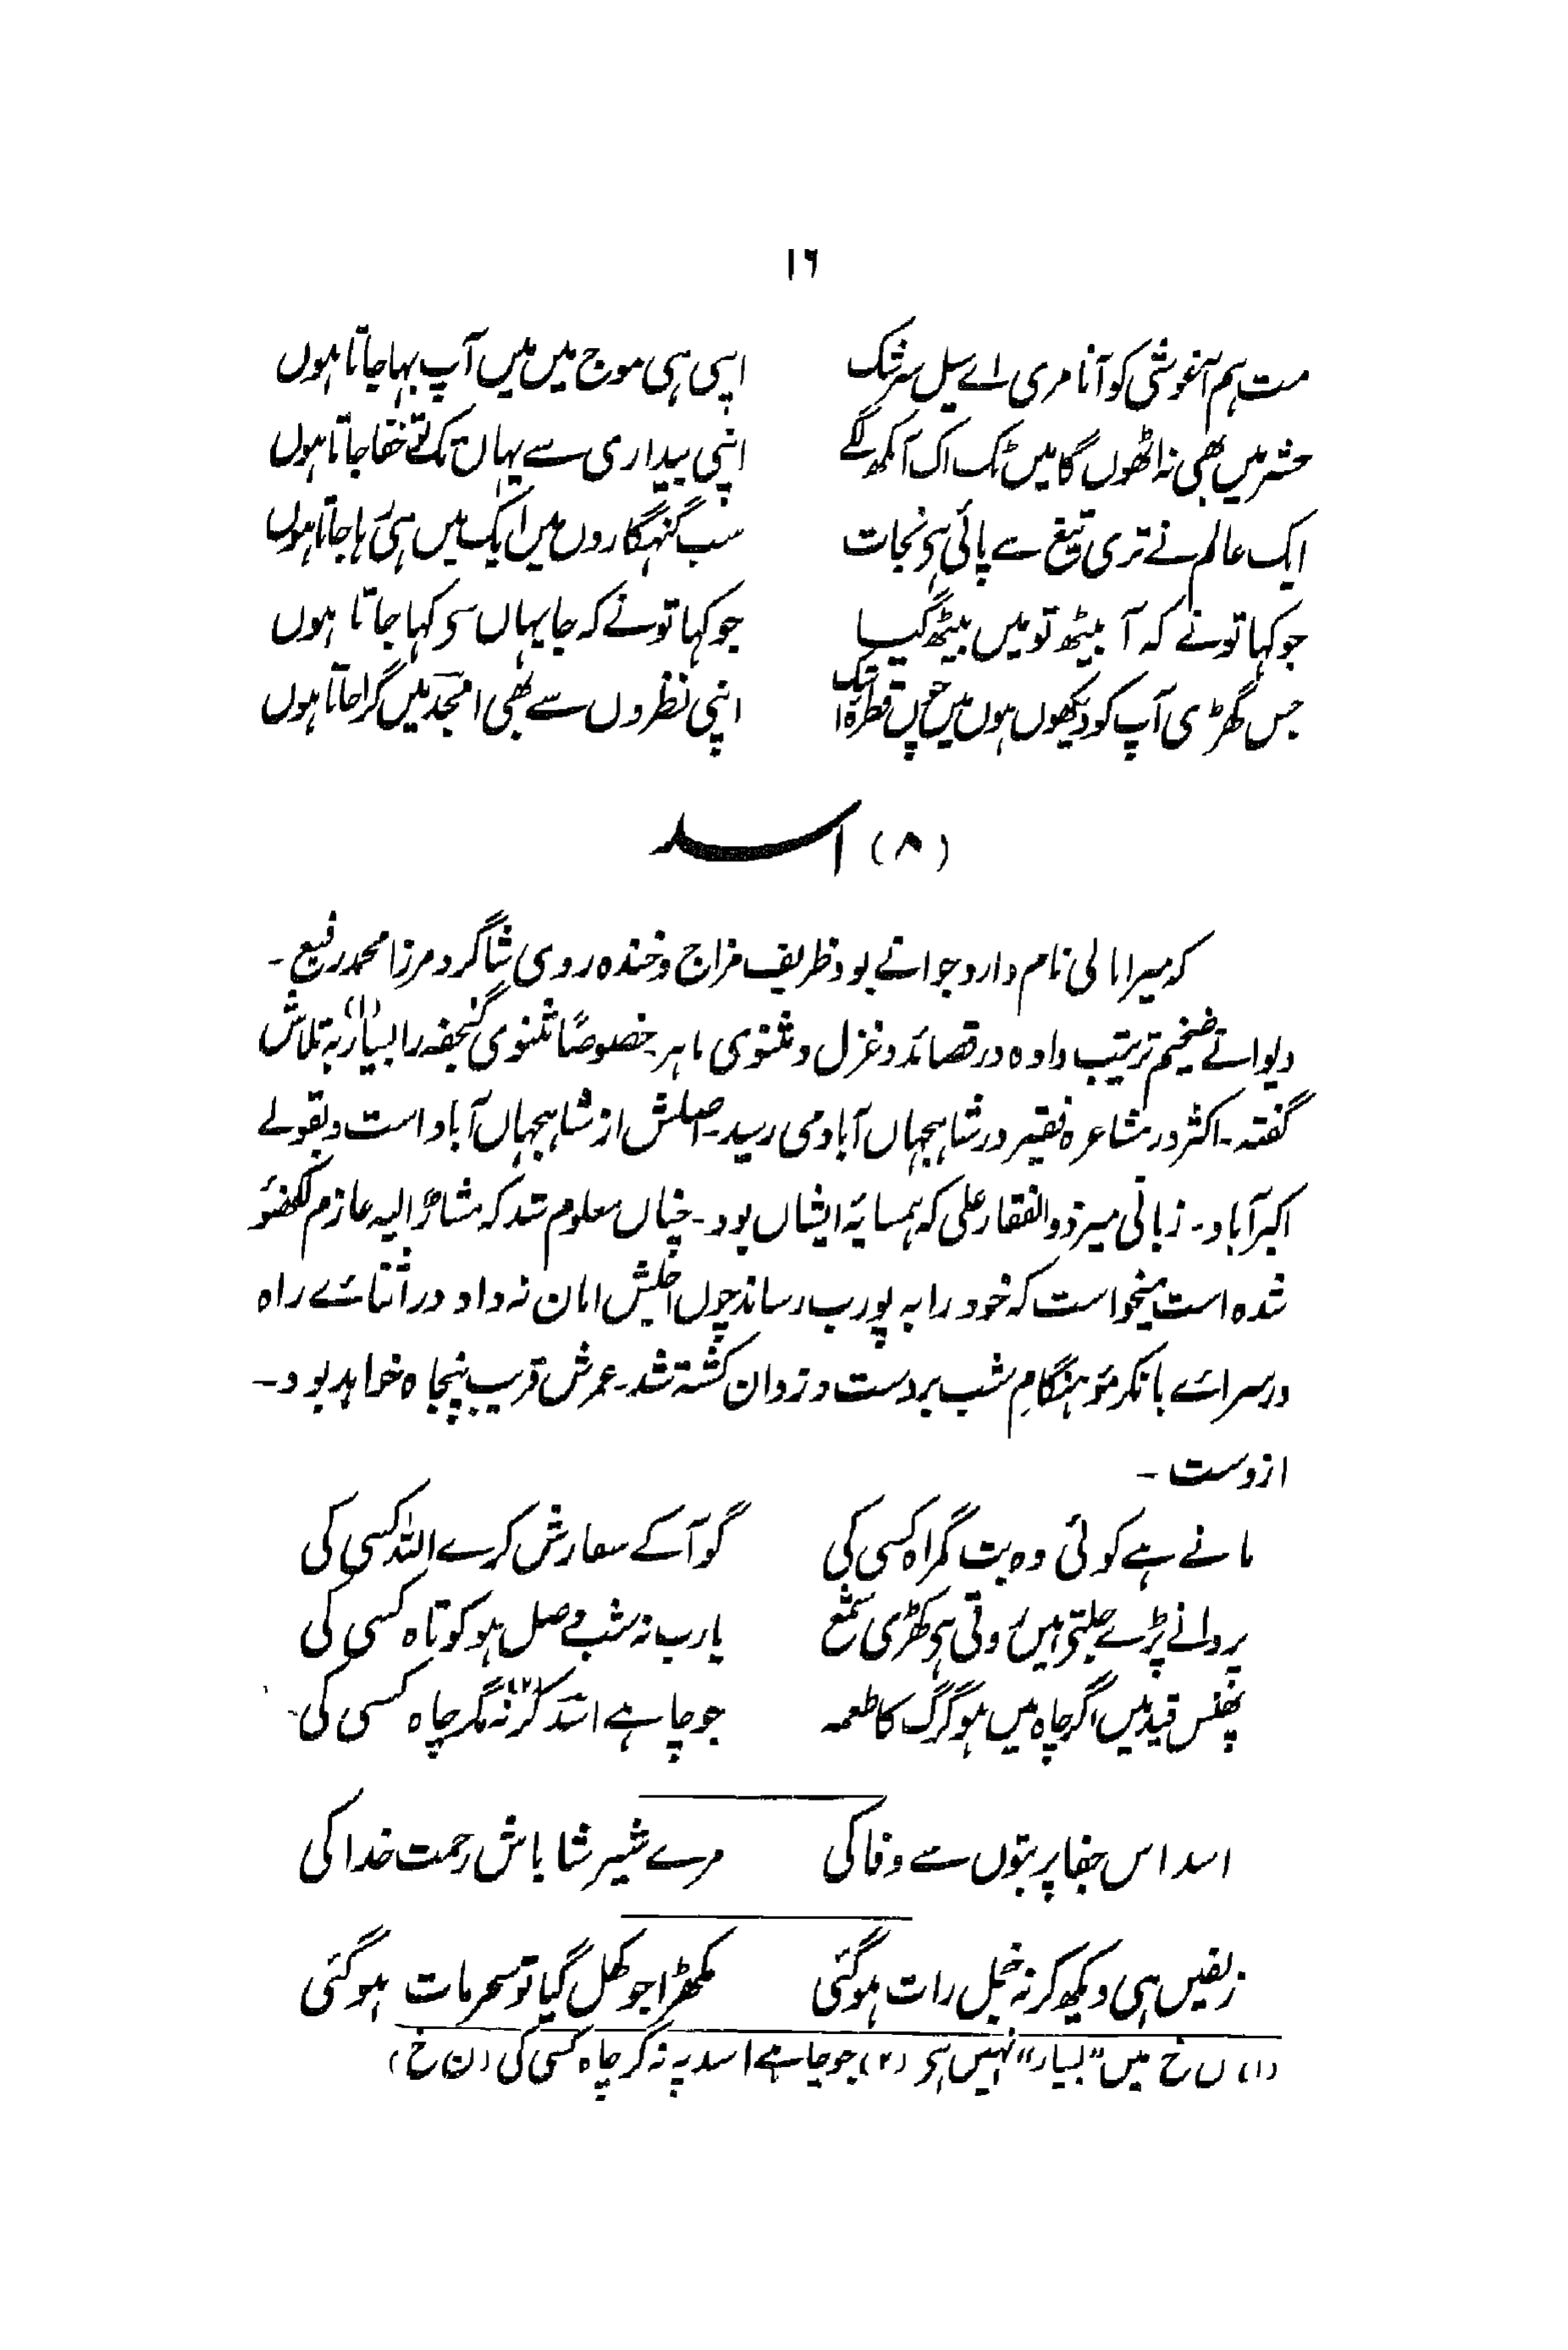 ۱۶
مت ہم آغوشی کو آنا مری اے سیل سرشک اپنی ہی موج میں میں آپ بہا جاتا ہوں
حشر میں بھی نہ اٹھوں گا میں ٹک اک آنکھ لگے اپنی بیداری سے یہاں تک تئے خفا جاتا ہوں
ایک عالم نے تری تیغ سے پائی ہی نجات سب گنہگاروں میں ایک میں ہی رہا جاتا ہوں
جو کہا تونے کہ آ بیٹھ تو میں بیٹھ گیا جو کہا تونے کہ جا یہاں سی کہا جاتا ہوں
جس گھڑی آپ کو دیکھوں ہوں میں جوں قطرۂ اشک اپنی نظروں سے بھی امجدؔ میں گرا جاتا ہوں
(۸) اسد
کہ میر امانی نام دارد جوانے بود ظریف مزاج و خندہ روی شاگرد مرزا محمد رفیع۔
دیوانے ضخیم ترتیب دادہ در قصائد و غزل و مثنوی ماہر۔ خصوصًا مثنوی گنجفہ را بسیار(۱) بہ تلاش
گفتہ۔ اکثر در مشاعرہ فقیر در شاہجہاں آباد می رسید۔ اصلش از شاہجہاں آباد است و بقولے
اکبرآباد۔ زبانی میر ذوالفقار علی کہ ہمسایۂ ایشاں بود۔ چناں معلوم شد کہ مشارٌ الیہ عازم لکھنؤ
شدہ است میخواست کہ خود را بہ پورب رساند چوں اجلش امان نہ داد در اثنائے راہ
در سرائے بانگرمؤ ہنگامِ شب بر دست دزدان کشتہ شد۔ عمرش قریب پنجاہ خواہد بود۔
ازوست۔
مانے ہے کوئی وہ بت گمراہ کسی کی گو آ کے سفارش کرے اللہ کسی کی
پروانے پڑے جلتے ہیں روتی ہی کھڑی شمع یارب نہ شب وصل ہو کوتاہ کسی کی
پھنس قید میں اگر چاہ میں ہو گرگ کا طعمہ جو چاہے اسدؔ کر نہ(۲) مگر چاہ کسی کی۔
اسد اس جفا پر بتوں سے وفا کی مرے شیر شاباش رحمت خدا کی
زلفیں ہی دیکھ کر نہ خجل رات ہوگئی مکھڑا جو کھل گیا تو سحر مات ہوگئی
(۱) ن خ میں "بسیار" نہیں ہی (۲) جو چاہے اسد پہ نہ کر چاہ کسی کی (ن خ)